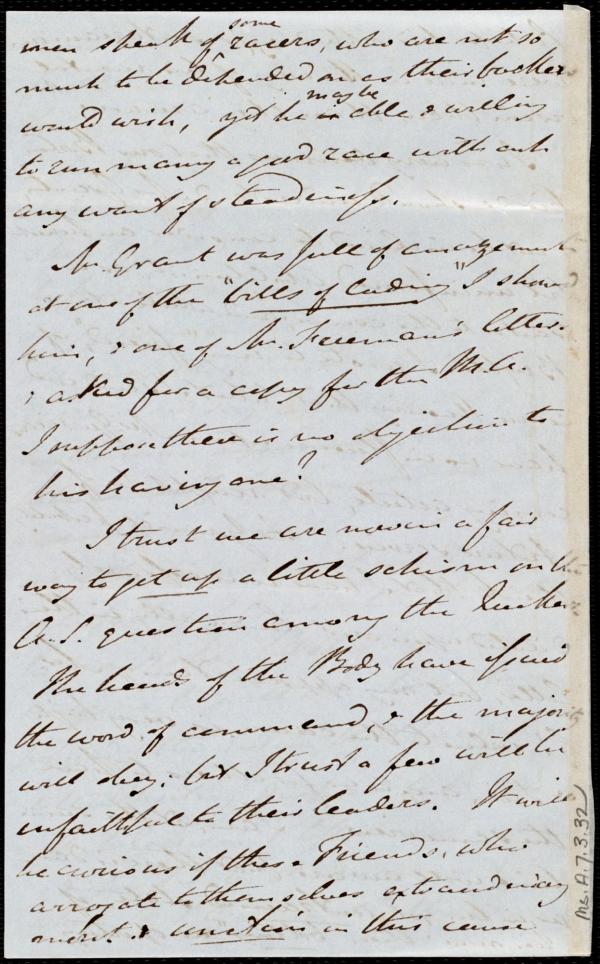 some
men speak of ^ racers, who are not so
much to be depended on as their backers
may be
would wish, yet be in able & willing
to run many a good race without
any want of steadiness.
Mr. Grant was full of amazement
at one of the "bills of lading" I showed
him, & one of Mr. Freeman's letters.
& asked for a copy for the M.C.
I suppose there is no objection to
his having one?
I trust we are now in a fair
way to get up a little schism on the
A.S. question among the Quakers
The heads of the Body have issued
the word of command, & the majority
will obey: but I trust a few will be
unfaithful to their leaders. It will
be curious if these Friends, who
arrogate to themselves extraordinary
merit & unction in this cause
Ms. A.7.3.32